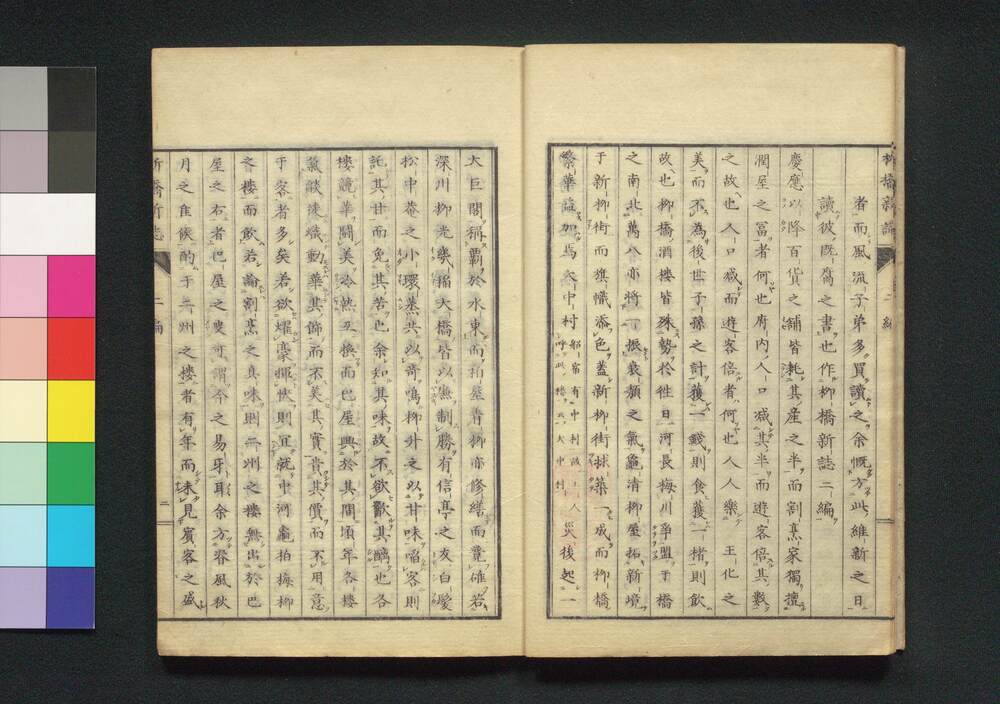 柳橋新誌 二編
者而風流子弟多買讀之余慨方此維新之日
讀彼既腐之書也作柳橋新誌二編
慶應以降百貨之舖皆耗其産之半而割烹家獨擅
潤屋之冨者何也府内人口減其半而遊客倍其數
之故也人口減而遊客倍者何也人人樂 王化之
美而不為後世子孫之計獲一錢則食獲一楮則飲
故也柳橋酒樓皆殊勢於往日河長梅川爭盟于橋
之南北萬八亦將一振衰頽之氣龜清柳屋拓新境
于新柳街而旗幟添色蓋新柳街土木築一成而柳橋
繁華益加焉 中村 災後起一
大巨閣稱覇於水東而柏屋青柳亦修繕而覺確若
深川柳光 大橋皆以 制勝有信亭之 白髮
松中菴之小環菉共以奇鳴柳外之以甘味啗客則
託其甘而免其苦也余知其味故不欲歠其醨也各
樓競華鬪美冷熱互換而巴屋興於其間頃年各樓
氣燄 熾動華其飾而不美其實貴其價而不用意
于客者多矣若欲燿豪揮 則宜就中河龜柏梅柳
之樓而飲若論割烹之真味則二州之樓無出於巴
屋之右者巴屋之 可謂今之易牙耳余方春風秋
月之佳候酌于二州之樓者有年而未見賓客之盛
柳橋新誌 二編 二